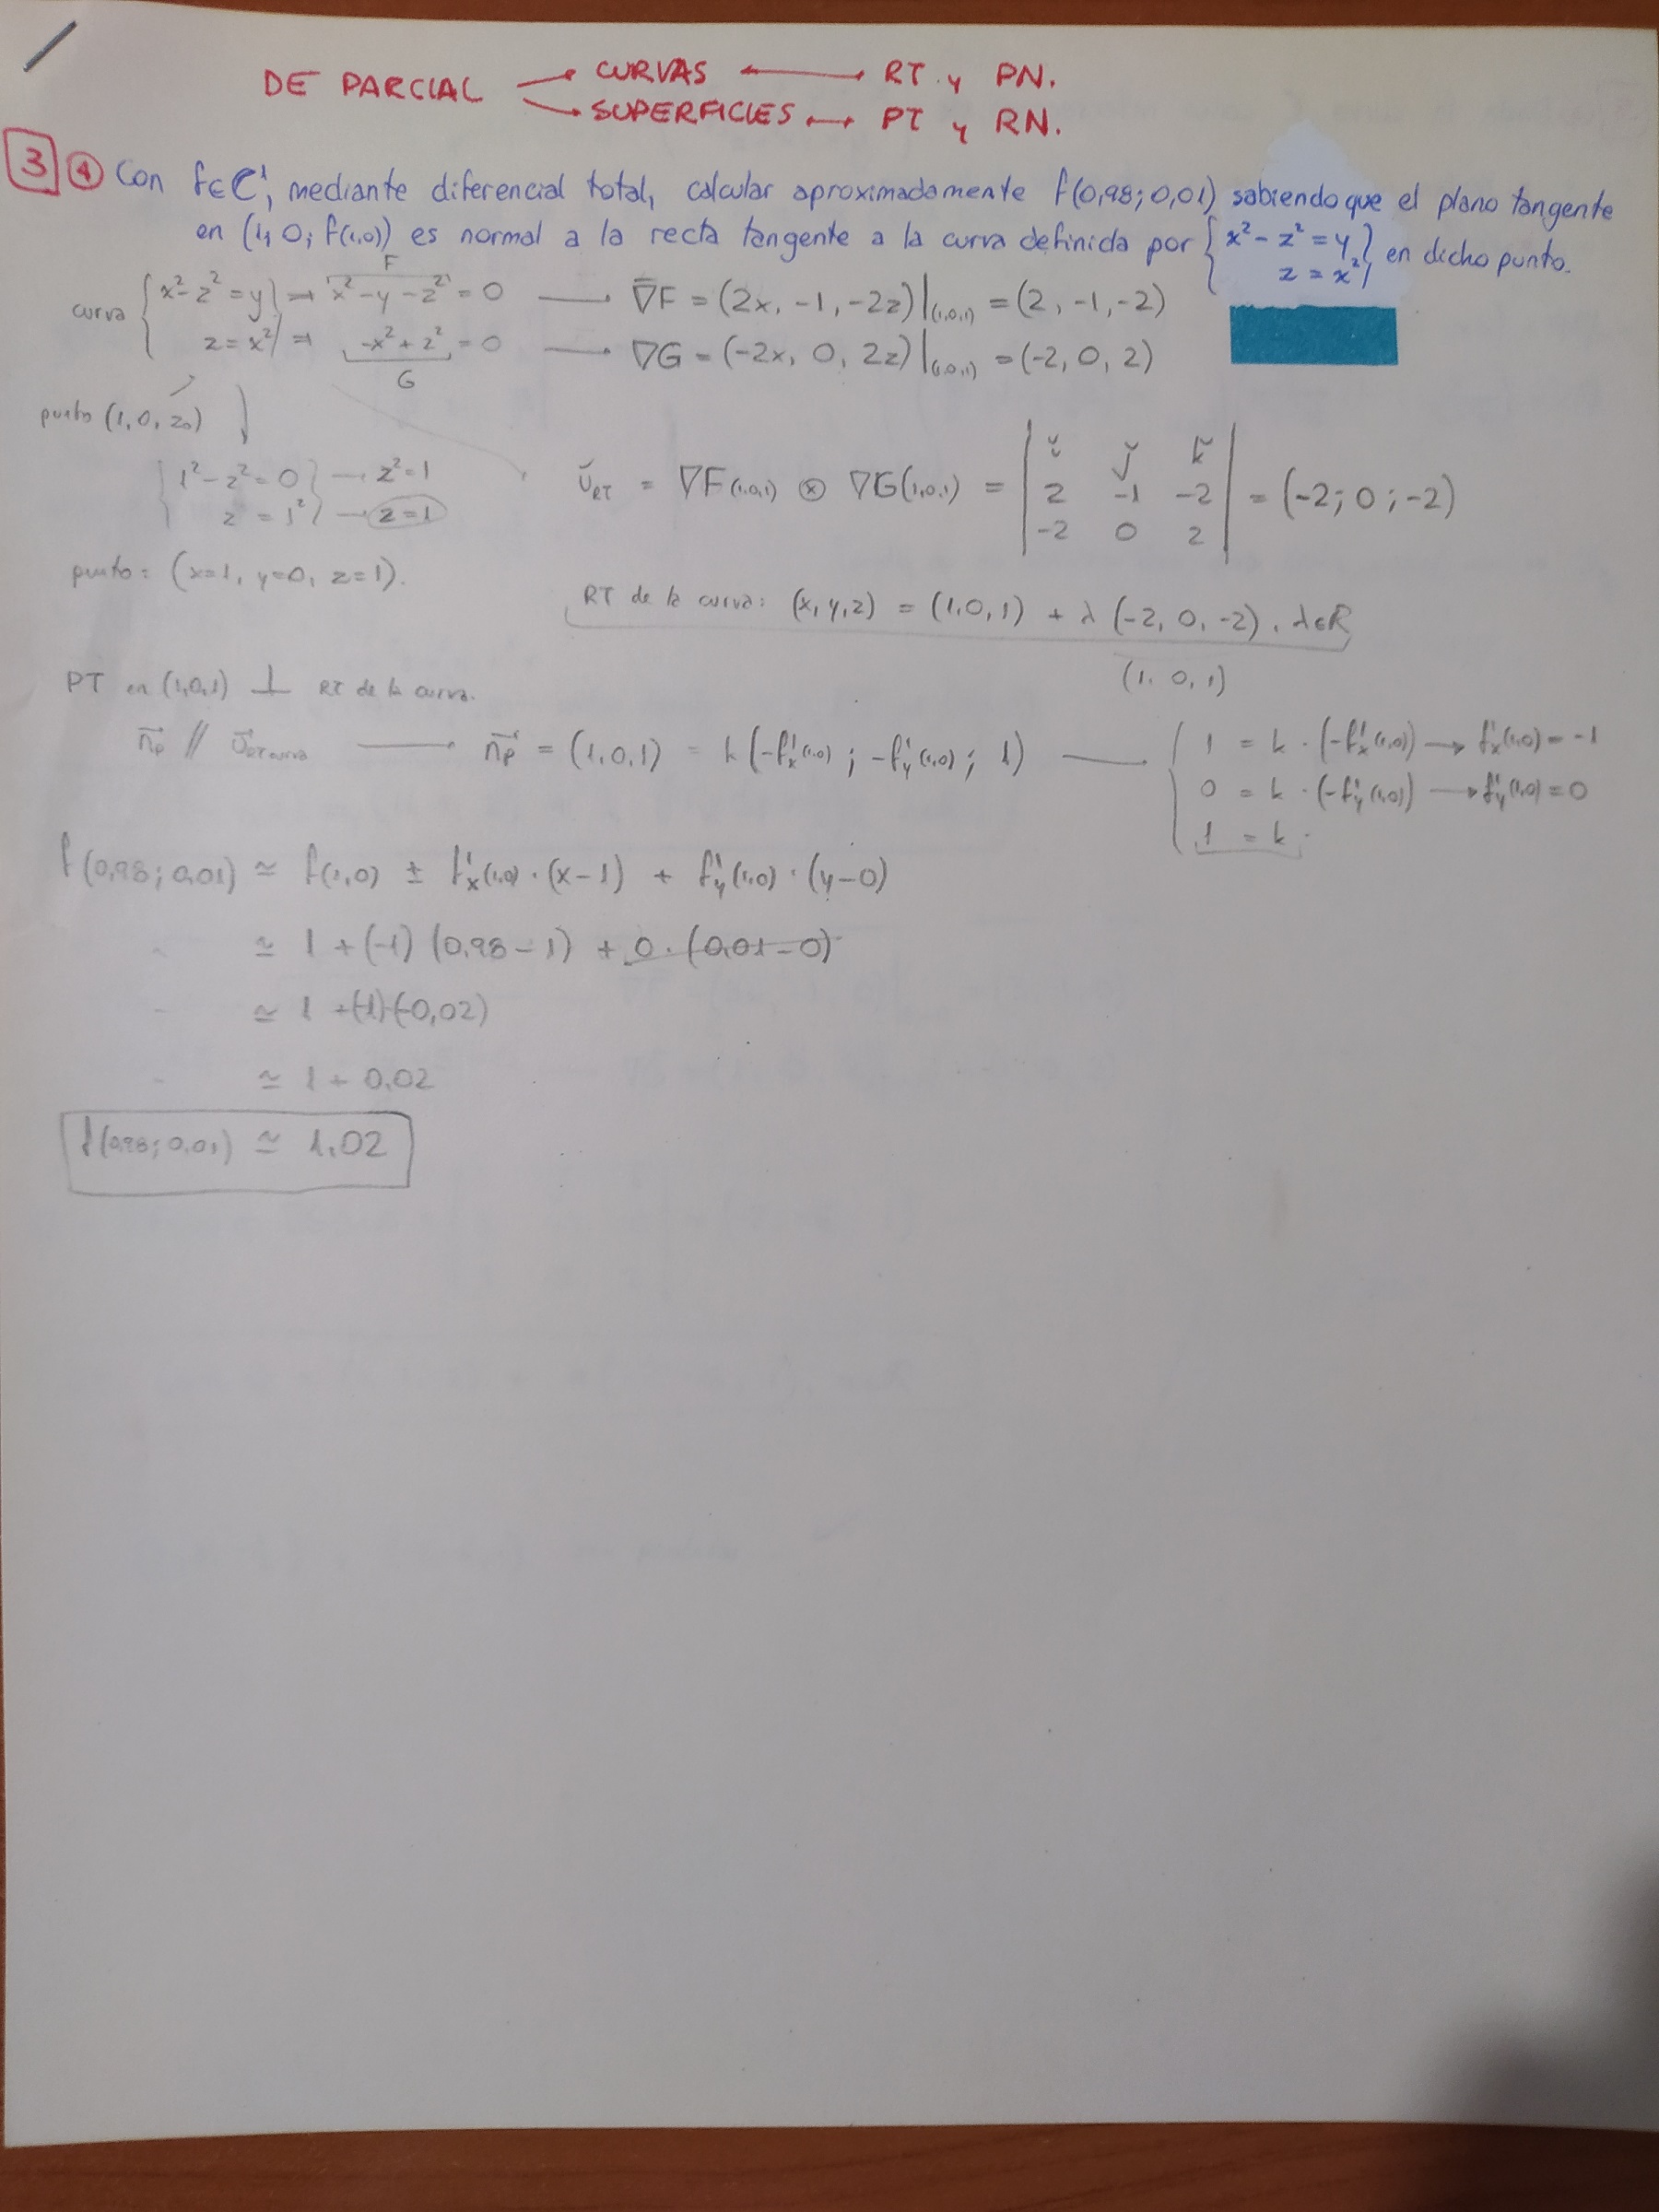 DE PARCIAL → CURVAS ←→ RT y PN.
→ SUPERFICIES ←→ PT y RN.
3 4 Con f∈C¹, mediante diferencial total, calcular aproximadamente f(0,98; 0,01) sabiendo que el plano tangente
en (1, 0; f(1,0)) es normal a la recta tangente a la curva definida por { x² - z² = y, z = x² } en dicho punto.
curva { x² - z² = y → x² - y - z² = 0 → ∇F = (2x, -1, -2z)|(1,0,1) = (2, -1, -2)
F
z = x² → -x² + z² = 0 → ∇G = (-2x, 0, 2z)|(1,0,1) = (-2, 0, 2)
G
punto (1, 0, z₀)
{ 1² - z² = 0 } → z² = 1
z = 1² } → z = 1
punto: (x=1, y=0, z=1).
ῠRT = ∇F(1,0,1) ⊗ ∇G(1,0,1) = | ῐ j̆ k̆ |
| 2 -1 -2 | = (-2; 0; -2)
| -2 0 2 |
RT de la curva: (x, y, z) = (1,0,1) + λ (-2, 0, -2), λ∈R
(1, 0, 1)
PT en (1,0,1) ⊥ RT de la curva.
n⃗p // v⃗RT curva → n⃗p = (1,0,1) = k (-f'x(1,0); -f'y(1,0); 1) → { 1 = k · (-f'x(1,0)) → f'x(1,0) = -1
0 = k · (-f'y(1,0)) → f'y(1,0) = 0
1 = k.
f(0,98; 0,01) ≃ f(1,0) ± f'x(1,0) · (x-1) + f'y(1,0) · (y-0)
≃ 1 + (-1) (0,98 - 1) + 0 · (0,01 - 0)
≃ 1 + (-1)(-0,02)
≃ 1 + 0,02
f(0,98; 0,01) ≃ 1,02